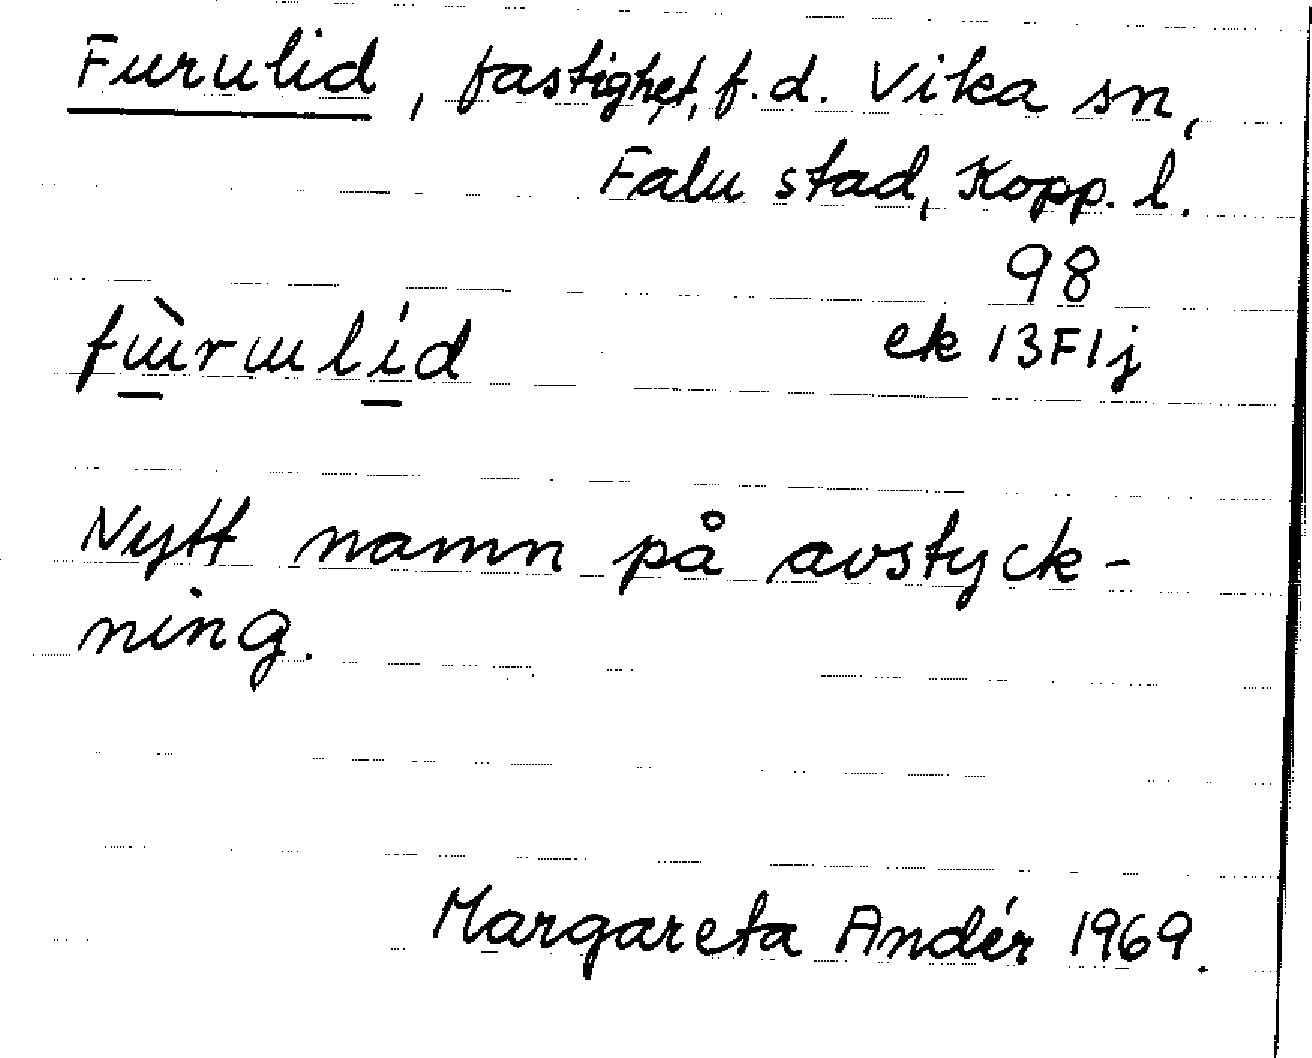 Furulid, fastighet, f.d. Vika sn,
Falu stad, Kopp. l.
98
fɯ̱̀rɯlı̱́d
ek 13F1j
Nytt namn på avstyck-
ning.
Margareta Andér 1969.